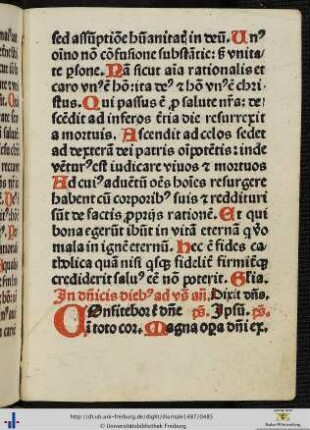 sed assũptiõe hũanitatꝭ in deũ. Unꝰ
oĩno nõ cõfusione substãtie: sꝫ vnita-
te ꝑsone. Nã sicut aĩa rationalis et
caro vnꝰ ẽ hõ: ita deꝰ ⁊ hõ vnꝰ ẽ chri-
stus. Qui passus ẽ ꝓ salute nr̃a: de-
scẽdit ad inferos t̃cia die resurrexit
a mortuis. Ascendit ad celos sedet
ad dexterã dei patris oĩpotẽtis: inde
vẽturꝰ est iudicare viuos ⁊ mortuos
Ad cuiꝰ aduẽtũ oẽs hoĩes resurgere
habent cũ corporibꝰ suis ⁊ reddituri
sũt de factis ꝓprijs rationẽ. Et qui
bona egerũt ibũt in vitã eternã qͦ vo
mala in ignẽ eternũ. Hec ẽ fides ca-
tholica quã nisi qͥsqꝫ fideliꝶ firmiꝶqꝫ
crediderit saluꝰ eẽ nõ poterit. Glia.
In dñicis diebꝰ ad vꝰ̃ añ. Dixit dñs.
COnfitebor ⁊ dñe ps̃. Ipsũ. ps̃.
ci toto cor. Magna oꝑa dñi ex.
http://dl.ub.uni-freiburg.de/diglit/diurnale1487/0485
© Universitätsbibliothek Freiburg
Baden-Württemberg